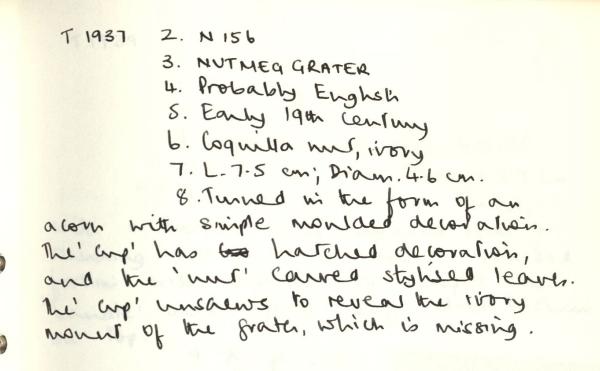 T 1937 2. N 156
3. NUTMEG GRATER
4. Probably English
5. Early 19th Century
6. Coquilla nut, ivory
7. L. 7.5 cm; Diam. 4.6 cm.
8. Turned in the form of an
acorn with simple moulded decoration.
The 'cup' has hatched decoration,
and the 'nut' carved stylised leaves.
The 'cup' unscrews to reveal the ivory
mount of the grater, which is missing.